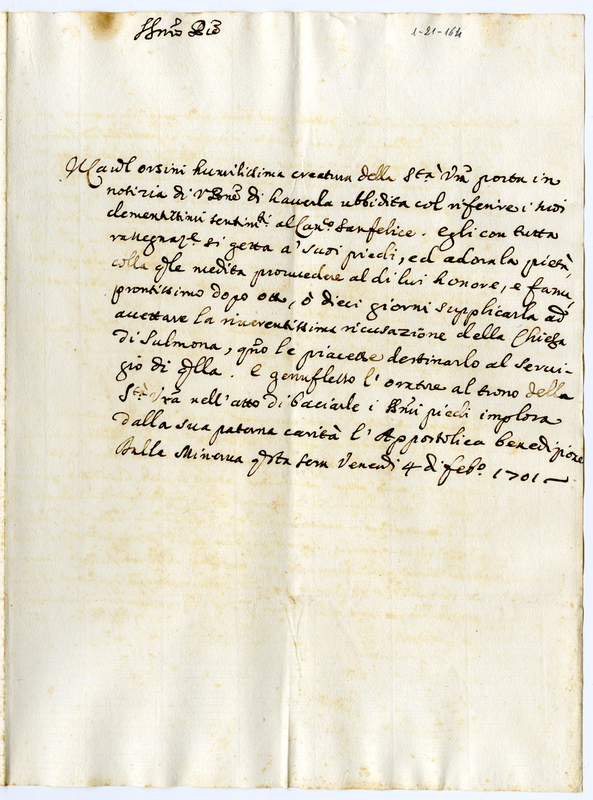 1-21-164
Card.l Orsini humilissima creatura della S.tà V.ra porta in
notizia di di haverla ubbidita col riferire i suoi
clementissimi sentim.ti al Can.co Sanfelice. Egli con tutta
rassegnaz.e si getta a' suoi piedi, ed adora la pietà,
colla q.le medita provvedere al di lui honore, e fama,
prontissimo dopo otto, ò dieci giorni supplicarla ad
accettare la riverentissima ricusazione della Chiesa
di Sulmona, q.do le piacesse destinarlo al servi-
gio di q.lla. E genuflesso l'oratore al trono della
S.tà V.ra nell'atto di baciarle i SS.mi piedi implora
dalla sua paterna carità l'Appostolica benedizione
Dalla Minerva q.sta sera Venerdì 4 di feb.o 1701